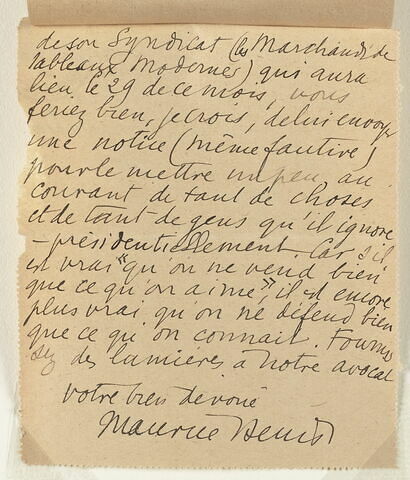 de son Syndicat (les Marchands de
tableaux Modernes) qui aura
lieu le 29 de ce mois, vous
feriez bien, je crois, de lui envoyer
une notice (même fautive)
pour le mettre un peu au
courant de tant de choses
et de tant de gens qu'il ignore
- présidentiellement. Car s'il
est vrai "qu'on ne vend bien
que ce qu'on aime", il est encore
plus vrai qu'on ne défend bien
que ce qu'on connait. Fournis
sez des lumières à notre avocat
votre bien dévoué
Maurice Denis